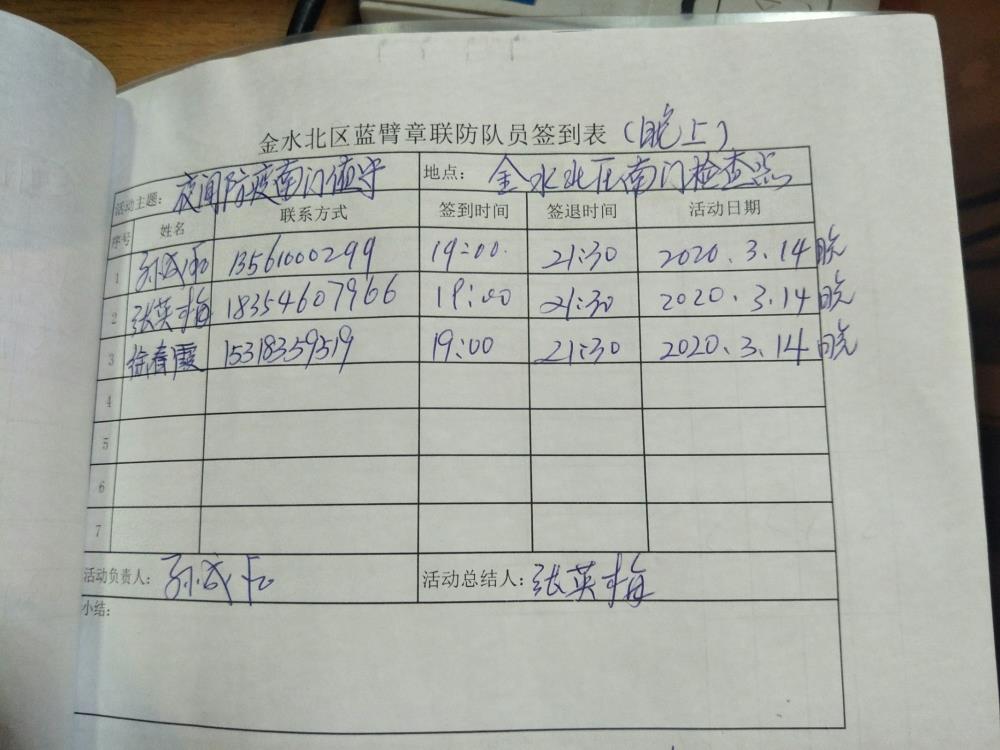 金水北区蓝臂章联防队员签到表（晚上）
活动主题：夜间防疫南门值守 地点：金水北区南门检查点
序号 姓名 联系方式 签到时间 签退时间 活动日期
1 孙成 13561000299 19:00. 21:30 2020.3.14晚
2 张英梅 18354607966 19:00 21:30 2020.3.14晚
3 徐春霞 15318359519 19:00 21:30 2020.3.14晚
4
5
6
7
活动负责人：孙成 活动总结人：张英梅
小结：